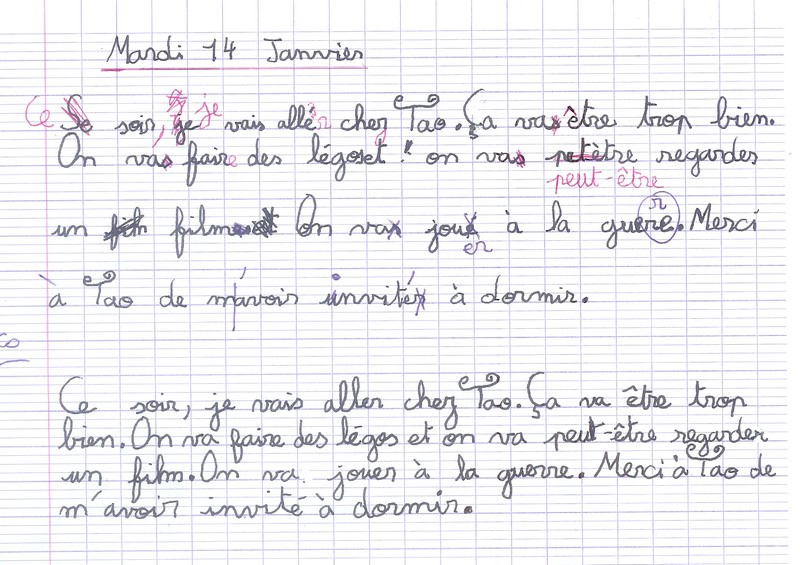 Mardi 14 Janvier
Ce soir, je vais aller chez Tao. Ça va être trop bien.
On va faire des légos et on va être regarder
peut-être
un film On va jouer à la guerre. Merci
er
à Tao de m'avoir invité à dormir.
Ce soir, je vais aller chez Tao. Ça va être trop
bien. On va faire des légos et on va peut-être regarder
un film. On va jouer à la guerre. Merci à Tao de
m'avoir invité à dormir.